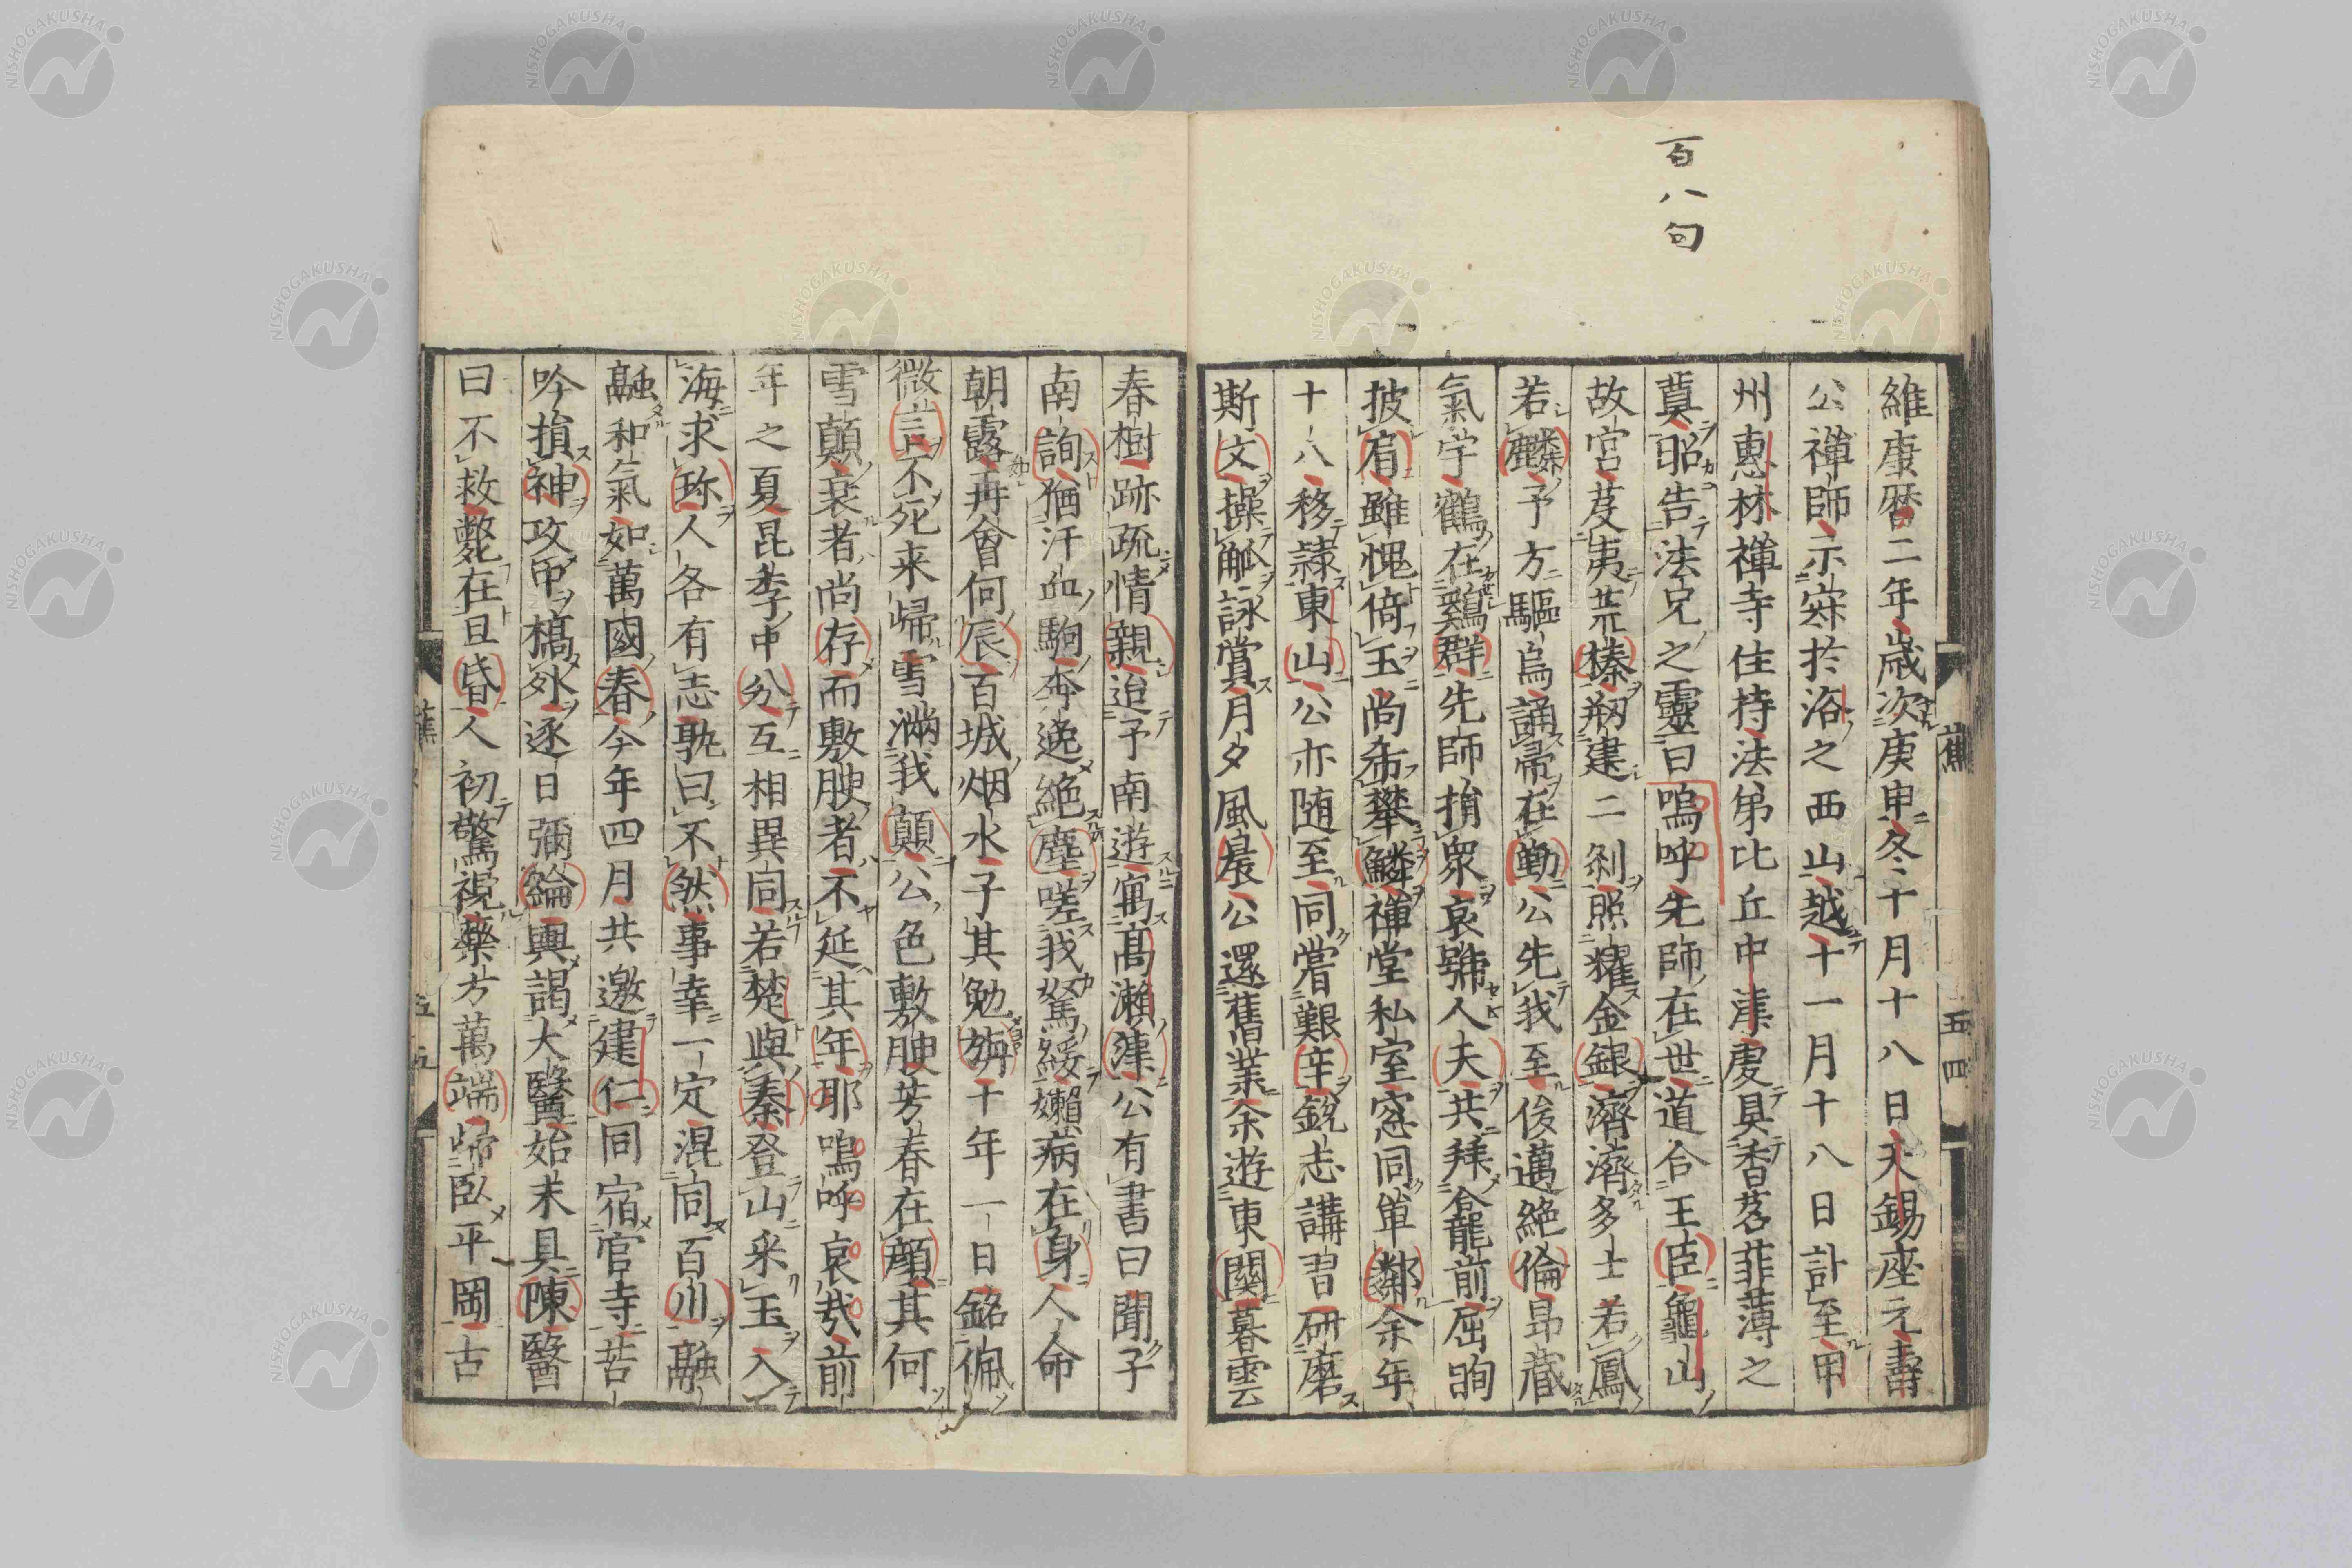 百八句
維康暦二年歳次庚申冬十月十八日天錫座元壽
公禪師示寂於洛之西山越十一月十八日訃至甲
州惠林禪寺住持法弟比丘中津虔具香茗菲薄之
奠昭告法兄之靈曰嗚呼先師在世道合王臣龜山
故宮芟夷荒榛剏建二刹照耀金銀濟濟多士若鳳
若麟予方驅烏誦帚在勤公先我至俊邁絶倫昂藏
氣宇鶴在鷄群先師捐衆哀號人夫共拜倉龍前屈眴
披肩雖愧倚玉尚希攀鱗禪堂私室窓同單鄰余年
十八移隷東山公亦随至同嘗艱辛鋭志講習研磨
斯文操觚詠賞月夕風晨公還舊業余遊東關暮雲
春樹跡疏情親迨予南遊寓髙瀬津公有書曰聞子
南詢猶汗血駒奔逸絶塵嗟我駑緩嬾病在身人命
朝露再會何辰百城烟水子其勉旃十年一日銘佩
微言不死来歸雪滿我顛公色敷腴芳春在顔其何
雪顛衰者尚存而敷腴者不延其年耶嗚呼哀哉前
年之夏昆季中分互相異同若楚與秦登山采玉入
海求珎人各有志孰曰不然事幸一定混同百川融
融和氣如萬國春今年四月共邀建仁同宿官寺苦
吟損神攻甲槁外逐日彌綸輿謁大醫始末具陳醫
曰不救斃在旦昏人初驚視藥方萬端歸臥平岡古
蕉
五四
蕉
五五
NISHOGAKUSHA